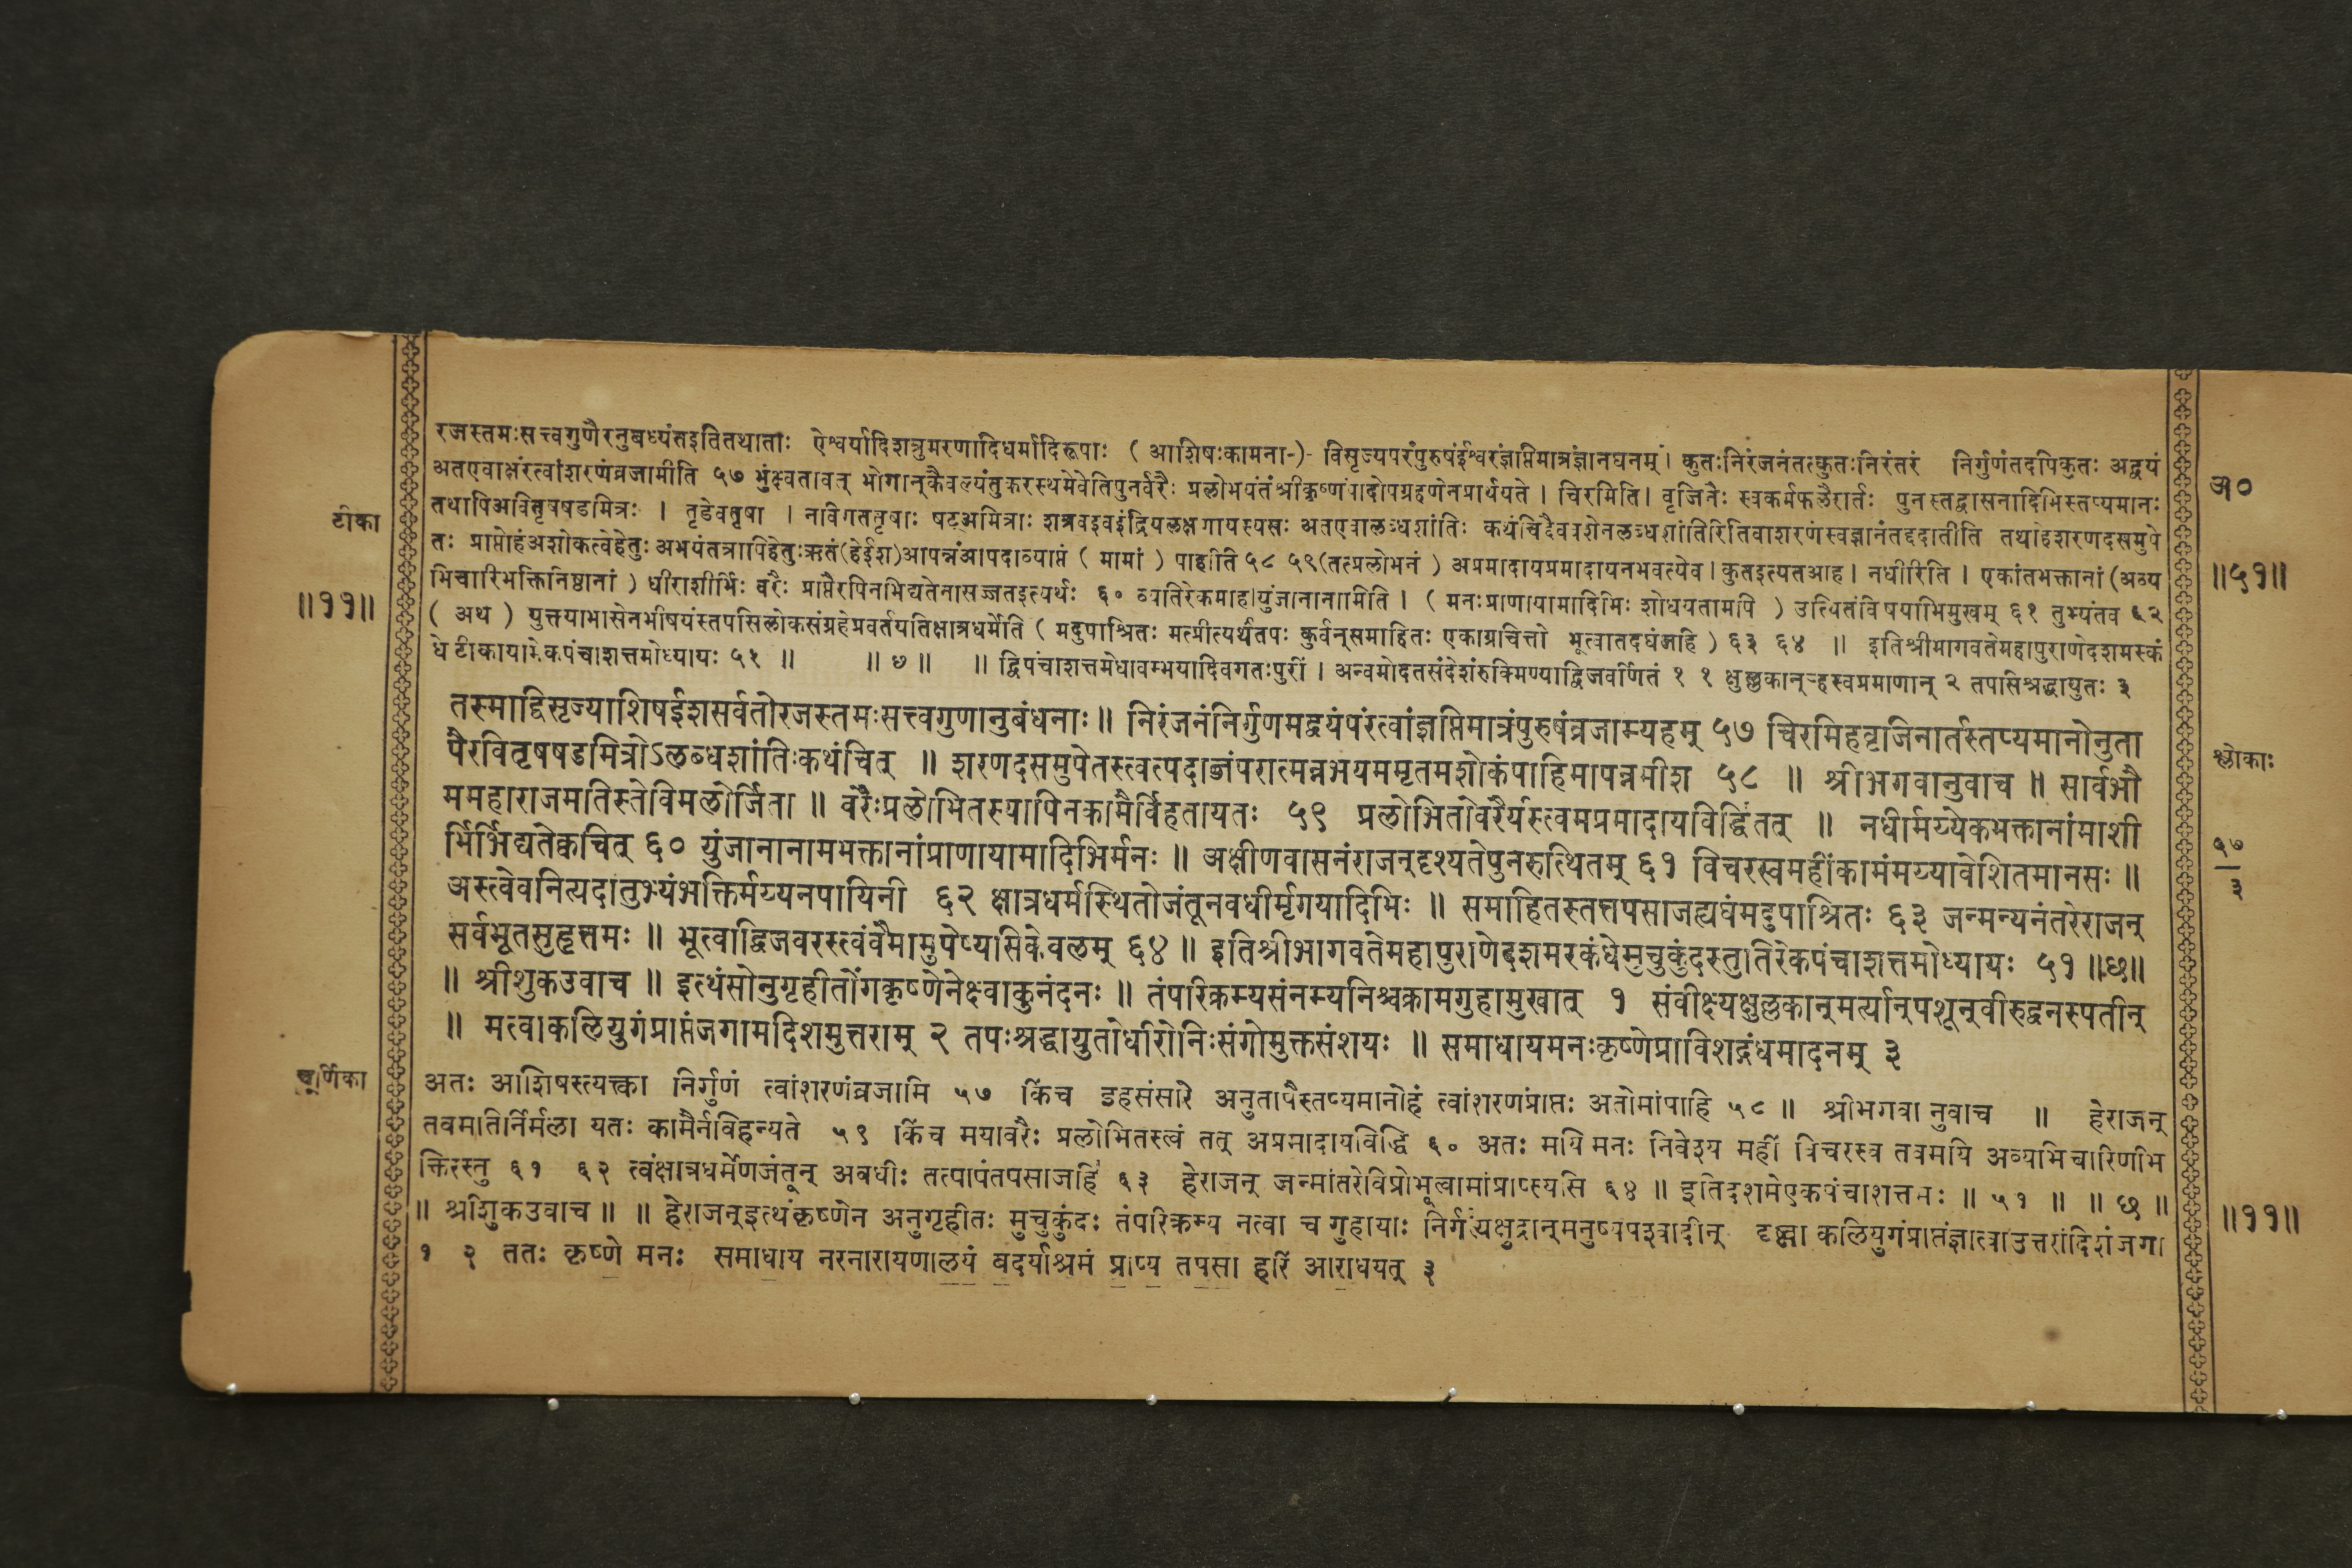 रजस्तमःसत्त्वगुणैरनुबध्यंतइतितथाताः ऐश्वर्यादिशत्रुमरणादिधर्मादिरूपाः ( आशिषःकामना-)- विसृज्यपरंपुरुषंईश्वरंज्ञप्तिमात्रंज्ञानघनम् । कुतःनिरंजनंतत्कुतःनिरंतरं निर्गुणंतदपिकुतः अद्वयं
अतएवाक्षरंत्वांशरणंव्रजामीति ५७ भुंक्ष्वतावत् भोगान्कैवल्यंतुकरस्थमेवेतिपुनर्वरैः प्रलोभयंतंश्रीकृष्णंपादोपग्रहणेनप्रार्थयते । चिरमिति । वृजिनैः स्वकर्मफलैरार्तः पुनस्तद्वासनादिभिस्तप्यमानः
तथापिअवितृषषडमित्रः । तृडेवतृषा । नविगततृषाः षट्अमित्राः शत्रवइवइंद्रियलक्षणायस्यसः अतएवालब्धशांतिः कथंचिद्दैववशेनलब्धशांतिरितिवाशरणंस्वज्ञानंतद्ददातीति तथाहेशरणदसमुपे
तः प्राप्तोहंअशोकत्वेहेतुः अभयंतत्रापिहेतुःऋतं(हेईश)आपन्नंआपदाव्याप्तं ( मामां ) पाहीति ५८ ५९(तत्प्रलोभनं ) अप्रमादायप्रमादायनभवत्येव । कुतइत्यतआह । नधीरिति । एकांतभक्तानां (अव्य
भिचारिभक्तिनिष्ठानां ) धीराशीर्भिः वरैः प्राप्तैरपिनभिद्यतेनासज्जतइत्यर्थः ६० व्यतिरेकमाह।युंजानानामिति । ( मनःप्राणायामादिभिः शोधयतामपि ) उत्थितंविषयाभिमुखम् ६१ तुभ्यंतव ६२
( अथ ) युत्तयाभासेनभीषयंस्तपसिलोकसंग्रहेप्रवर्तयतिक्षात्रधर्मेति ( मदुपाश्रितः मत्प्रीत्यर्थंतपः कुर्वन्समाहितः एकाग्रचित्तो भूत्वातदघंजहि ) ६३ ६४ ॥ इतिश्रीभागवतेमहापुराणेदशमस्कं
धेटीकायामेकपंचाशत्तमोध्यायः ५१ ॥ ॥ ७ ॥ ॥ द्विपंचाशत्तमेधावम्भयादिवगतःपुरीं । अन्वमोदतसंदेशंरुक्मिण्याद्विजवर्णितं १ १ क्षुल्लकान्‌ह्रस्वप्रमाणान् २ तपसिश्रद्धायुतः ३
टीका
॥११॥
अ०
॥५१॥
तस्माद्विसृज्याशिषईशसर्वतोरजस्तमःसत्त्वगुणानुबंधनाः ॥ निरंजनंनिर्गुणमद्वयंपरंत्वांज्ञप्तिमात्रंपुरुषंव्रजाम्यहम् ५७ चिरमिहवृजिनार्तस्तप्यमानोनुता
पैरवितृषषडमित्रोऽलब्धशांतिःकथंचित् ॥ शरणदसमुपेतस्त्वत्पदाब्जंपरात्मन्नभयममृतमशोकंपाहिमापन्नमीश ५८ ॥ श्रीभगवानुवाच ॥ सार्वभौ
ममहाराजमतिस्तेविमलोर्जिता ॥ वरैःप्रलोभितस्यापिनकामैर्विहतायतः ५९ प्रलोभितोवरैर्यत्स्त्वमप्रमादायविद्धितत् ॥ नधीर्मय्येकभक्तानांमाशी
र्भिर्भिद्यतेक्वचित् ६० युंजानानामभक्तानांप्राणायामादिभिर्मनः ॥ अक्षीणवासनंराजन्दृश्यतेपुनरुत्थितम् ६१ विचरस्वमहींकामंमय्यावेशितमानसः ॥
अस्त्वेवनित्यदातुभ्यंभक्तिर्मय्यनपायिनी ६२ क्षात्रधर्मस्थितोजंतूनवधीर्मृगयादिभिः ॥ समाहितस्तत्तपसाजह्यघंमदुपाश्रितः ६३ जन्मन्यनंतरेराजन्
सर्वभूतसुहृत्तमः ॥ भूत्वाद्विजवरस्त्वंवैमामुपेष्यसिकेवलम् ६४ ॥ इतिश्रीभागवतेमहापुराणेदशमस्कंधेमुचुकुंदस्तुतिरेकपंचाशत्तमोध्यायः ५१ ॥छ॥
॥ श्रीशुकउवाच ॥ इत्थंसोनुगृहीतोंगकृष्णेनेक्ष्वाकुनंदनः ॥ तंपरिक्रम्यसंनम्यनिश्चक्रामगुहामुखात् १ संवीक्ष्यक्षुल्लकान्मर्त्यान्पशून्वीरुद्वनस्पतीन्
॥ मत्वाकलियुगंप्राप्तंजगामदिशमुत्तराम् २ तपःश्रद्धायुतोधीरोनिःसंगोमुक्तसंशयः ॥ समाधायमनःकृष्णेप्राविशद्गंधमादनम् ३
श्लोकाः
५७
३
चूर्णिका
अतः आशिषस्त्यक्त्वा निर्गुणं त्वांशरणंव्रजामि ५७ किंच इहसंसारे अनुतापैस्तप्यमानोहं त्वांशरणंप्राप्तः अतोमांपाहि ५८ ॥ श्रीभगवा नुवाच ॥ हेराजन्
तवमतिर्निर्मला यतः कामैर्नविहन्यते ५९ किंच मयावरैः प्रलोभितस्त्वं तत् अप्रमादायविद्धि ६० अतः मयि मनः निवेश्य महीं विचरस्व तवमयि अव्यभिचारिणीभ
क्तिरस्तु ६१ ६२ त्वंक्षात्रधर्मेणजंतून् अवधीः तत्पापंतपसाजहि ६३ हेराजन् जन्मांतरेविप्रोभूत्वामांप्राप्स्यसि ६४ ॥ इतिदशमेएकपंचाशत्तमः ॥ ५१ ॥ ॥ छ ॥
॥ श्रीशुकउवाच ॥ ॥ हेराजन्इत्थंकृष्णेन अनुगृहीतः मुचुकुंदः तंपरिक्रम्य नत्वा च गुहायाः निर्गत्यक्षुद्रान्मनुष्यपश्वादीन् दृष्ट्वा कलियुगंप्राप्तंज्ञात्वाउत्तरांदिशंजगा
१ २ ततः कृष्णे मनः समाधाय नरनारायणालयं बदर्याश्रमं प्राप्य तपसा हरिं आराधयत् ३
॥११॥